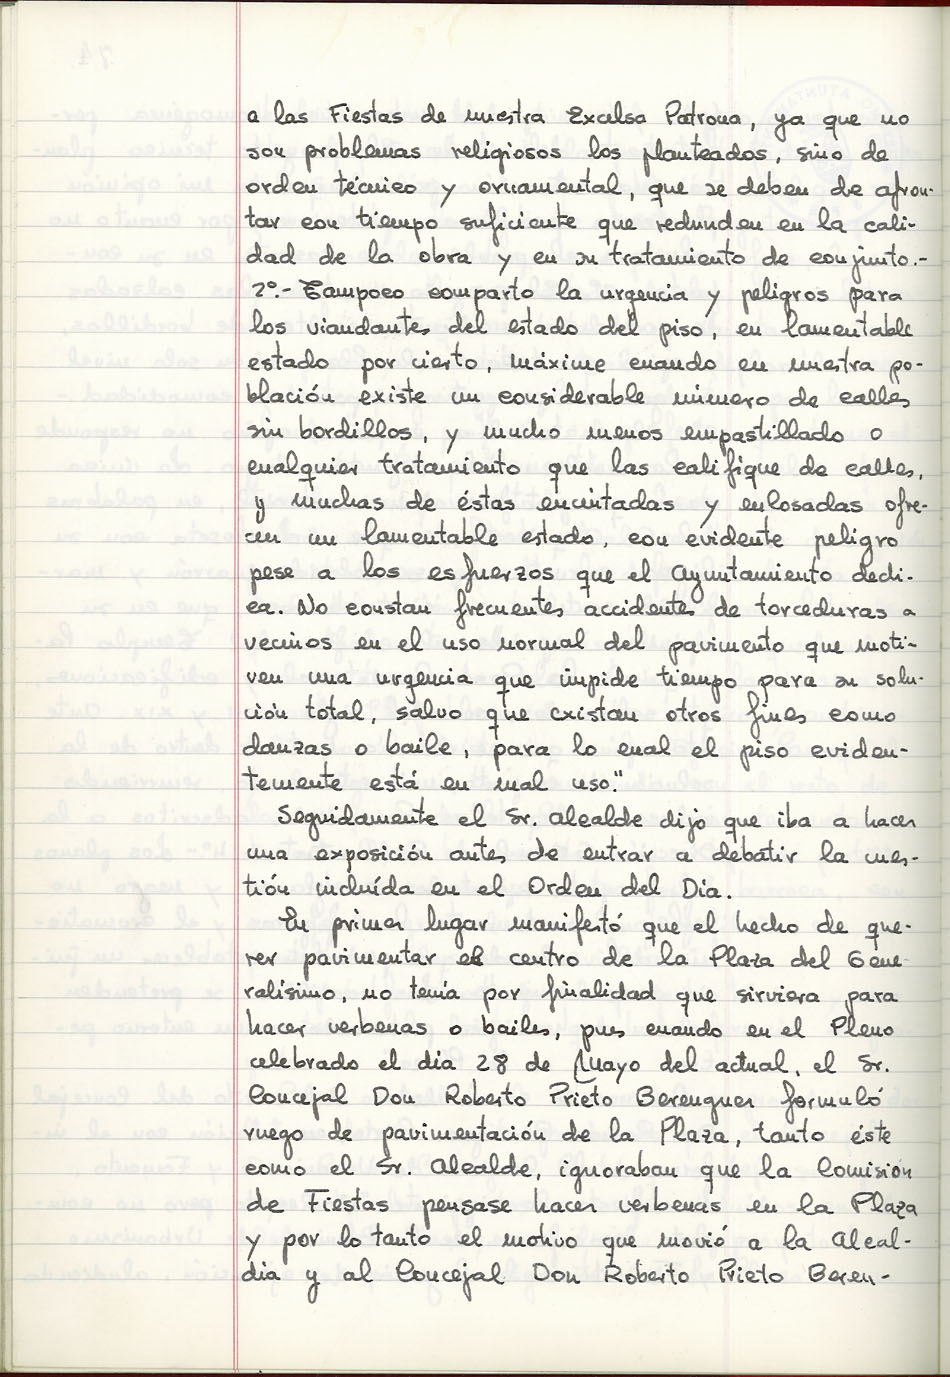 a las Fiestas de nuestra Excelsa Patrona, ya que no
son problemas religiosos los planteados, sino de
orden técnico y ornamental, que se deben de afron-
tar con tiempo suficiente que redunden en la cali-
dad de la obra y en su tratamiento de conjunto.-
2º.- Tampoco comparto la urgencia y peligros para
los viandantes del estado del piso, en lamentable
estado por cierto, máxime cuando en nuestra po-
blación existe un considerable número de calles
sin bordillos, y mucho menos empastillado o
cualquier tratamiento que las califique de calles,
y muchas de éstas encintadas y enlosadas ofre-
cen un lamentable estado, con evidente peligro
pese a los esfuerzos que el Ayuntamiento dedi-
ca. No constan frecuentes accidentes de torceduras a
vecinos en el uso normal del pavimento que moti-
ven una urgencia que impide tiempo para su solu-
ción total, salvo que existan otros fines como
danzas o baile, para lo cual el piso eviden-
temente está en mal uso."
Seguidamente el Sr. Alcalde dijo que iba a hacer
una exposición antes de entrar a debatir la cues-
tión incluída en el Orden del Día.
En primer lugar manifestó que el hecho de que-
rer pavimentar el centro de la Plaza del Gene
ralísimo, no tenía por finalidad que sirviera para
hacer verbenas o bailes, pues cuando en el Pleno
celebrado el día 28 de Mayo del actual, el Sr.
Concejal Don Roberto Prieto Berenguer formuló
ruego de pavimentación de la Plaza, tanto éste
como el Sr. Alcalde, ignoraban que la Comisión
de Fiestas pensase hacer verbenas en la Plaza
y por lo tanto el motivo que movió a la Alcal-
día y al Concejal Don Roberto Prieto Beren-